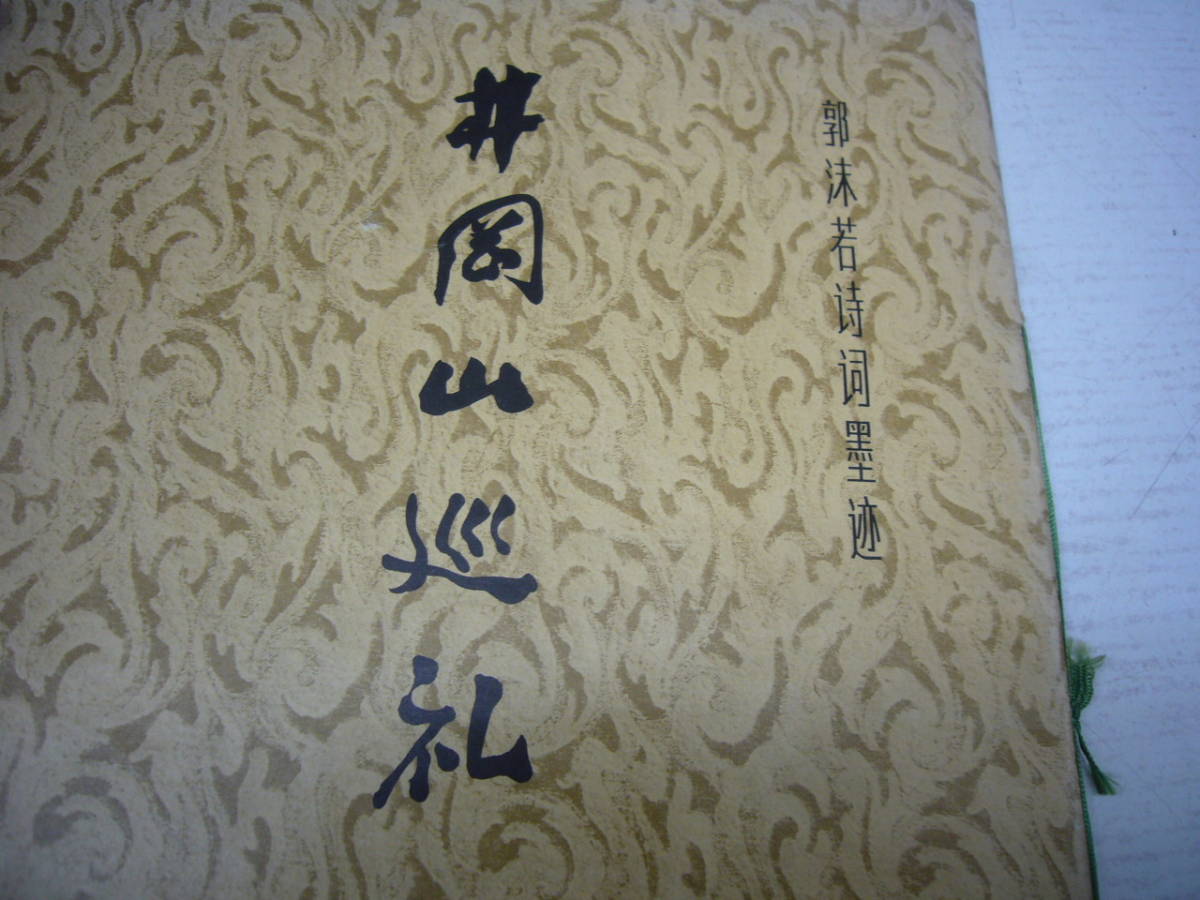 郭沫若诗词墨迹
井岡山巡礼